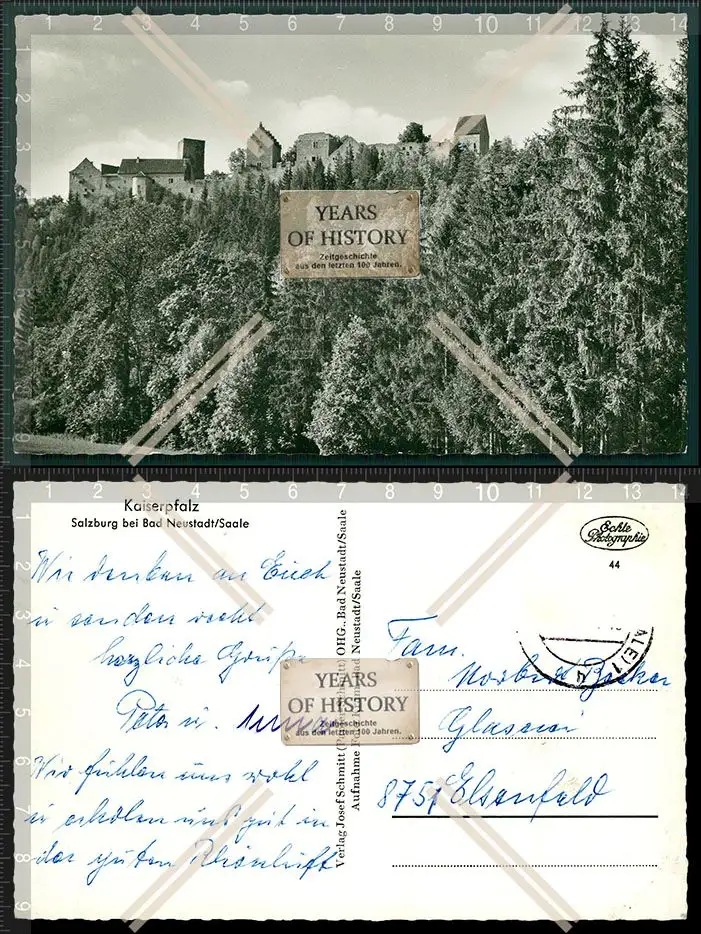 YEARS
OF HISTORY
Zeitgeschichte
aus den letzten 100 Jahren.
Kaiserpfalz
Salzburg bei Bad Neustadt/Saale
Echte
Photographie
44
Wir denken an Euch
u senden recht
herzliche Grüße
Peter u.
Wir fühlen uns wohl
u erholen uns gut in
der guten Rhönluft
Verlag Josef Schmitt OHG., Bad Neustadt/Saale
Aufnahme Bad Neustadt/Saale
YEARS
OF HISTORY
Zeitgeschichte
aus den letzten 100 Jahren.
Fam.
Glaserei
8751 Elsenfeld